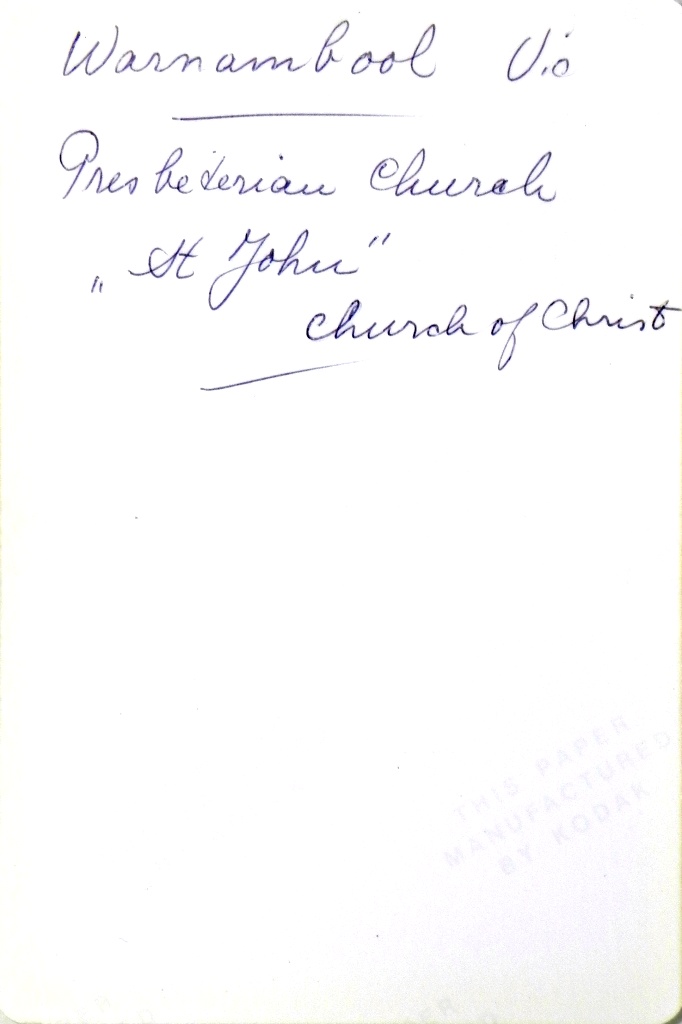 Warnambool Vic
Presbeterian Church
„St John"
Church of Christ
THIS PAPER
MANUFACTURED
BY KODAK